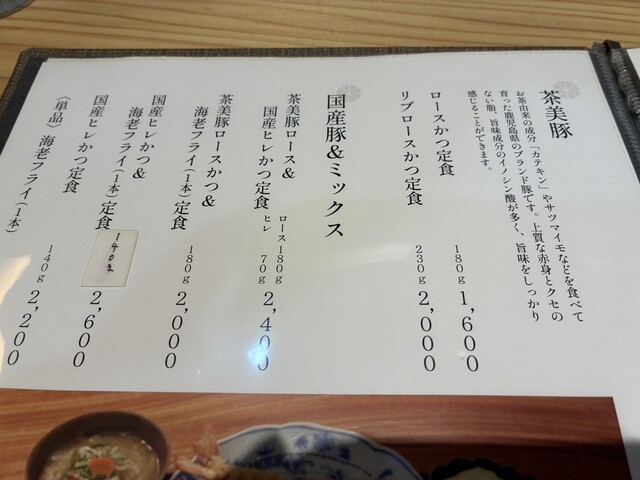 茶美豚
お茶由来の成分「カテキン」やサツマイモなどを食べて
育った鹿児島県のブランド豚です。上質な赤身とクセの
ない脂、旨味成分のイノシン酸が多く、旨味をしっかり
感じることができます。
ロースかつ定食 180g 1,600
リブロースかつ定食 230g 2,000
国産豚&ミックス
茶美豚ロース&
国産ヒレかつ定食 ロース 180g ヒレ 70g 2,400
茶美豚ロースかつ&
海老フライ(1本)定食 180g 2,000
国産ヒレかつ&
海老フライ(1本)定食 140g 2,600
国産ヒレかつ定食 140g 2,200
〈単品〉海老フライ(1本)